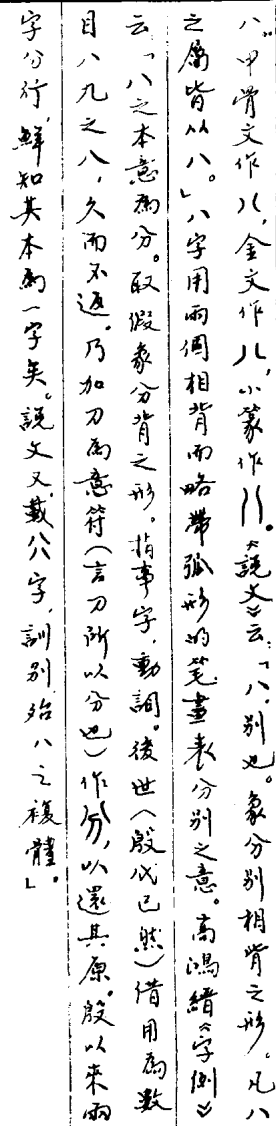 八：甲骨文作八，金文作八，小篆作八。《說文》云：「八，別也。象分別相背之形。凡八
之屬皆从八。」八字用兩個相背而略帶弧形的笔畫表分別之意。高鴻縉《字例》
云：「八之本意為分。取假象分背之形。指事字，動詞。後世（殷代已然）借用為數
目八九之八，久而不返。乃加刀為意符（言刀所以分也）作分，以還其原。殷以來兩
字分行，鮮知其本為一字矣。說文又載𠔁字，訓別，殆八之複體」。